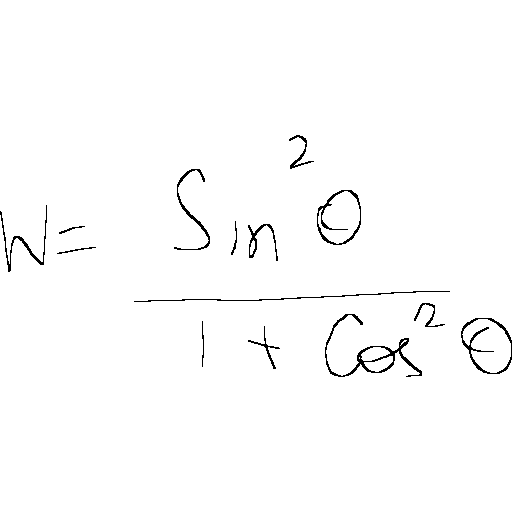 W = \frac{Sin^2 θ}{1 + Cos^2 θ}